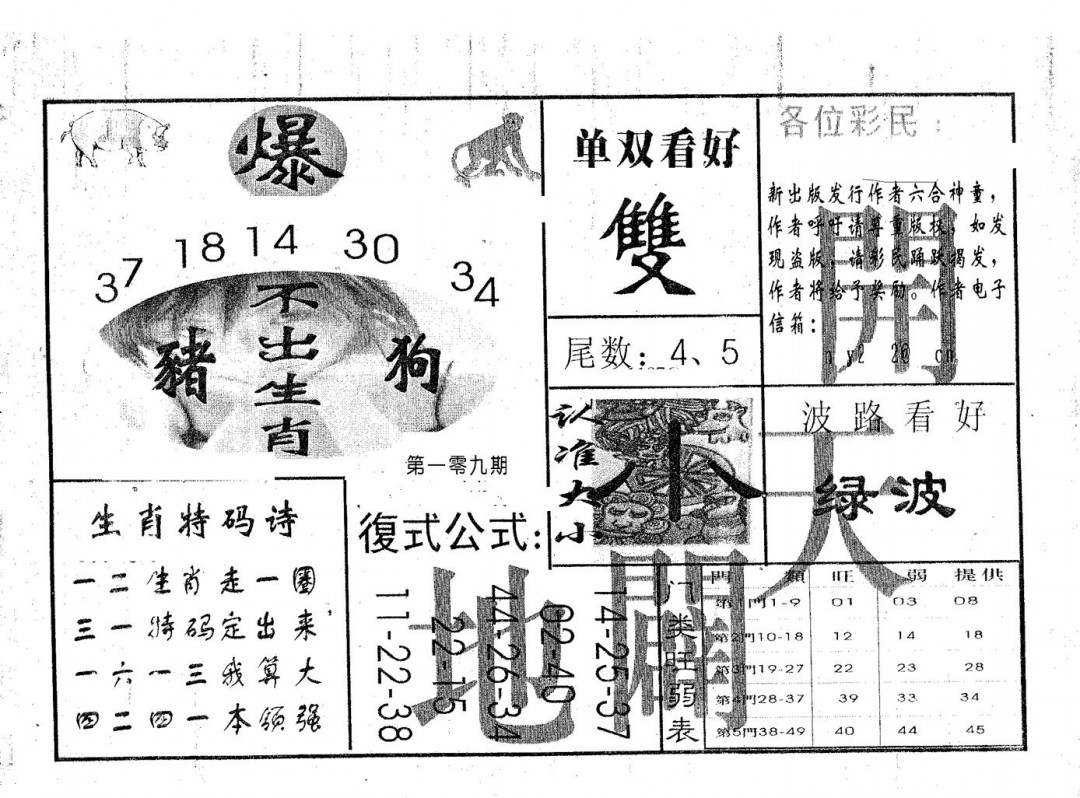 爆
37 18 14 30 34
不出生肖
豬
狗
第一零九期
单双看好
雙
尾数：4、5
各位彩民：
新出版发行作者六合神童，
作者呼吁请尊重版权，如发
现盗版、请彩民踊跃揭发，
作者将给予奖励。作者电子
信箱：
開天
闢地
认准大小
小
波路看好
绿波
生肖特码诗
一二生肖走一圈
三一特码定出来，
一六一三我算大
四二四一本领强
復式公式：
14-25-37
02-40
44-26-34
22-15
11-22-38
门类旺弱表
門類 旺 弱 提供
第1門1-9 01 03 08
第2門10-18 12 14 18
第3門19-27 22 23 28
第4門28-37 39 33 34
第5門38-49 40 44 45